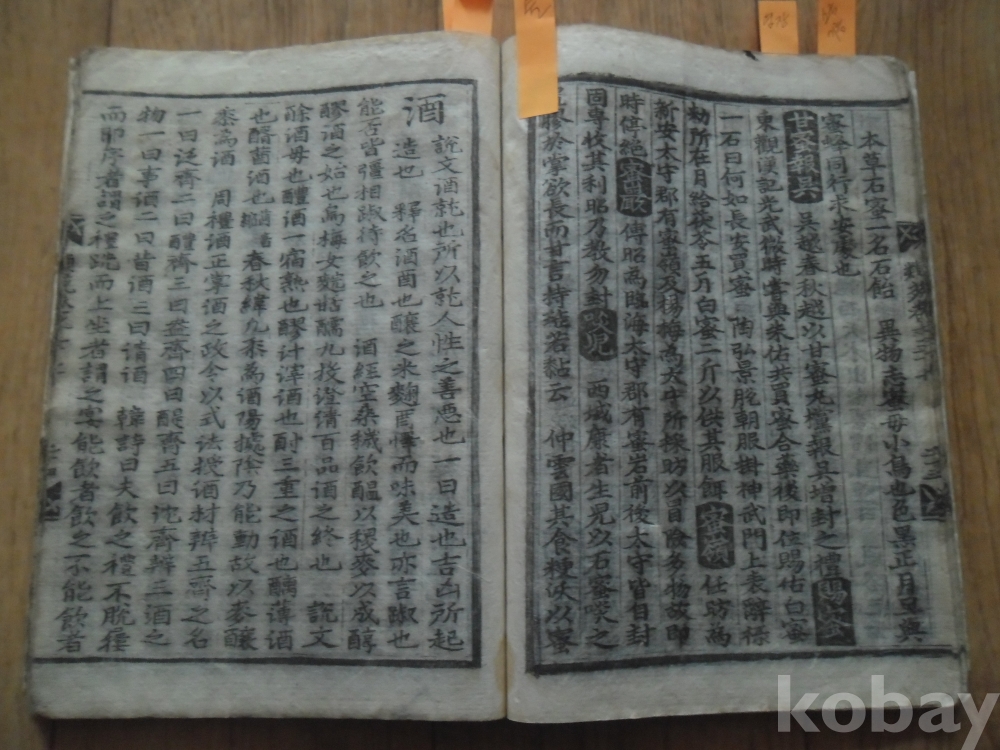 本草石蜜一名石飴 異物志 每小鳥也色黑正月旦與
蜜蜂同行求安處也
甘蜜報吳 吳越春秋越以甘蜜九欓報吳增封之禮 賜蜜
東觀漢記光武微時嘗與朱佑共買蜜合藥後即位賜佑白蜜
一石曰何如長安買蜜 陶弘景脫朝服樹神武門上表辭祿
勑所在月給茯令五斤白蜜二斤以供其服餌 蜜嶺 任昉為
新安太守郡有蜜嶺及楊梅為太守所採昉以冒險多物故即
時停絕 蜜巖 傅昭為臨海太守郡有蜜岩前後太守皆自封
固專收其利昭乃教勿封 啖兒 西域康者生兒以石蜜啖之
膠於掌欲長而甘言持 若黏云 仲雲國其食粳沃以蜜
酒 說文酒就也所以就人性之善惡也一曰造也吉凶所起
造也 釋名酒酉也釀之米麴酉懌而味美也亦言踧也
能否皆彊相踧待飲之也 酒經空桑穢飲醞以稷麥以成醇
醪酒之始也烏梅女䴷甜醹九投澄清百品酒之終也 說文
酴酒母也醴酒一宿熟也醪汁滓酒也酎三重之酒也醨薄酒
也醑莤酒也 春秋緯九黍為酒陽援陰乃能動故以麥釀
黍為酒 周禮酒正掌酒之政令以式法授酒材辨五齊之名
一曰泛齊二曰醴齊三曰盎齊四曰醍齊五曰沈齊辨三酒之
物一曰事酒二曰昔酒三曰請酒 韓詩曰夫飲之禮不脫屨
而即序者謂之禮跣而上坐者謂之宴能飲者飲之不能飲者
kobay